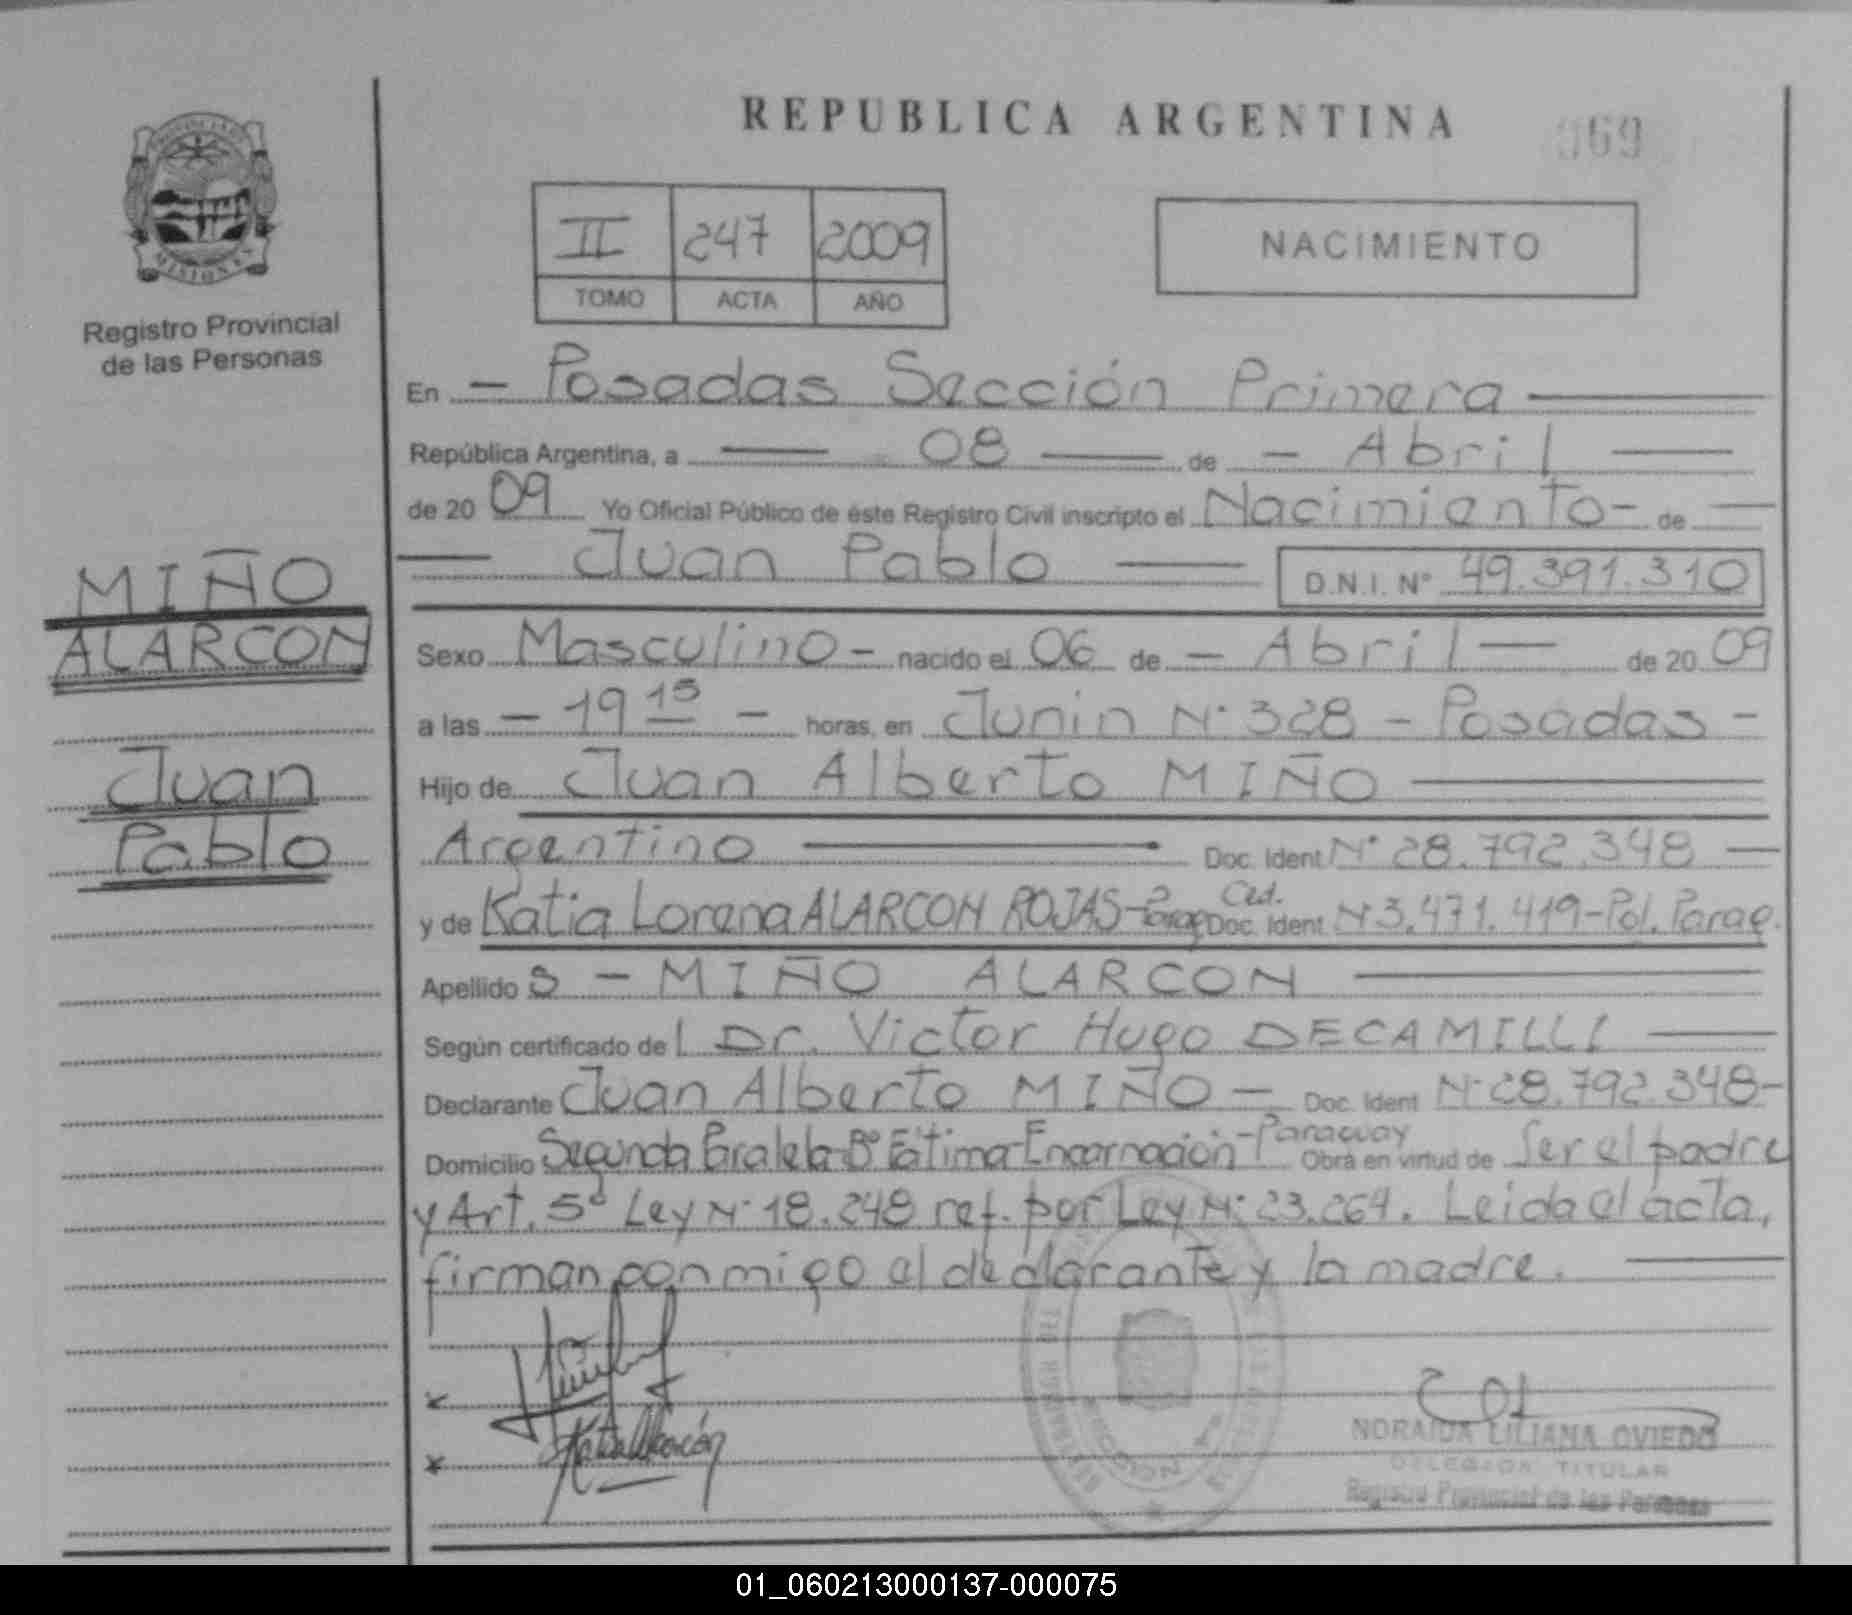 REPUBLICA ARGENTINA
969
PROVINCIA DE
MISIONES
Registro Provincial
de las Personas
II 247 2009
TOMO ACTA AÑO
NACIMIENTO
En - Posadas Sección Primera
República Argentina, a 08 de - Abril
de 20 09 Yo Oficial Público de éste Registro Civil inscripto el Nacimiento - de
Juan Pablo D.N.I. N° 49.391.310
MIÑO
ALARCON
Juan
Pablo
Sexo Masculino - nacido el 06 de - Abril de 20 09
a las - 19 15 - horas, en Junin N° 328 - Posadas -
Hijo de Juan Alberto MIÑO
Argentino Doc. Ident N° 28.792.348
y de Katia Lorena ALARCON ROJAS - Parag Ced. Doc. Ident N° 3.471.419 - Pol. Parag.
Apellido s - MIÑO ALARCON
Según certificado de l Dr. Victor Hugo DECAMILLI
Declarante Juan Alberto MIÑO - Doc. Ident N° 28.792.348 -
Domicilio Segunda Paralela - B° Fátima - Encarnación - Paraguay Obra en virtud de Ser el padre
y Art. 5° Ley N° 18.248 ref. por Ley N° 23.264. Leida el acta,
firman conmigo el declarante y la madre.
Katia Alarcón
NORAIDA LILIANA OVIEDO
DELEGADA TITULAR
Registro Provincial de las Personas
01_060213000137-000075